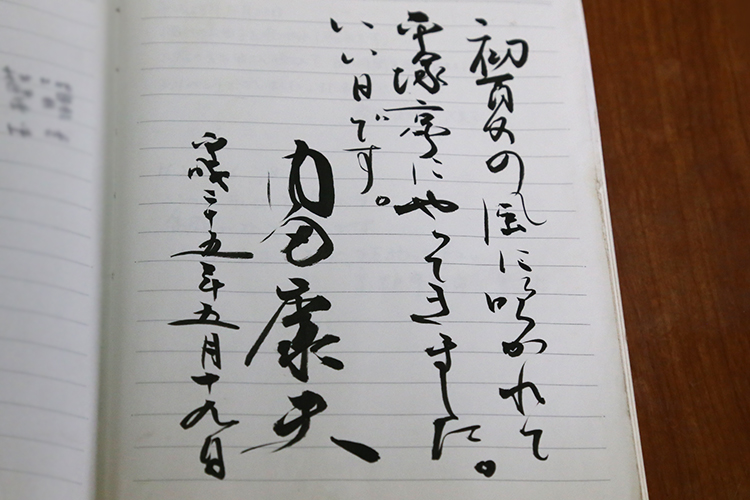 初夏の風に吹かれて
平塚亭にやってきました。
いい日です。
内田康夫
平成二十五年五月十九日